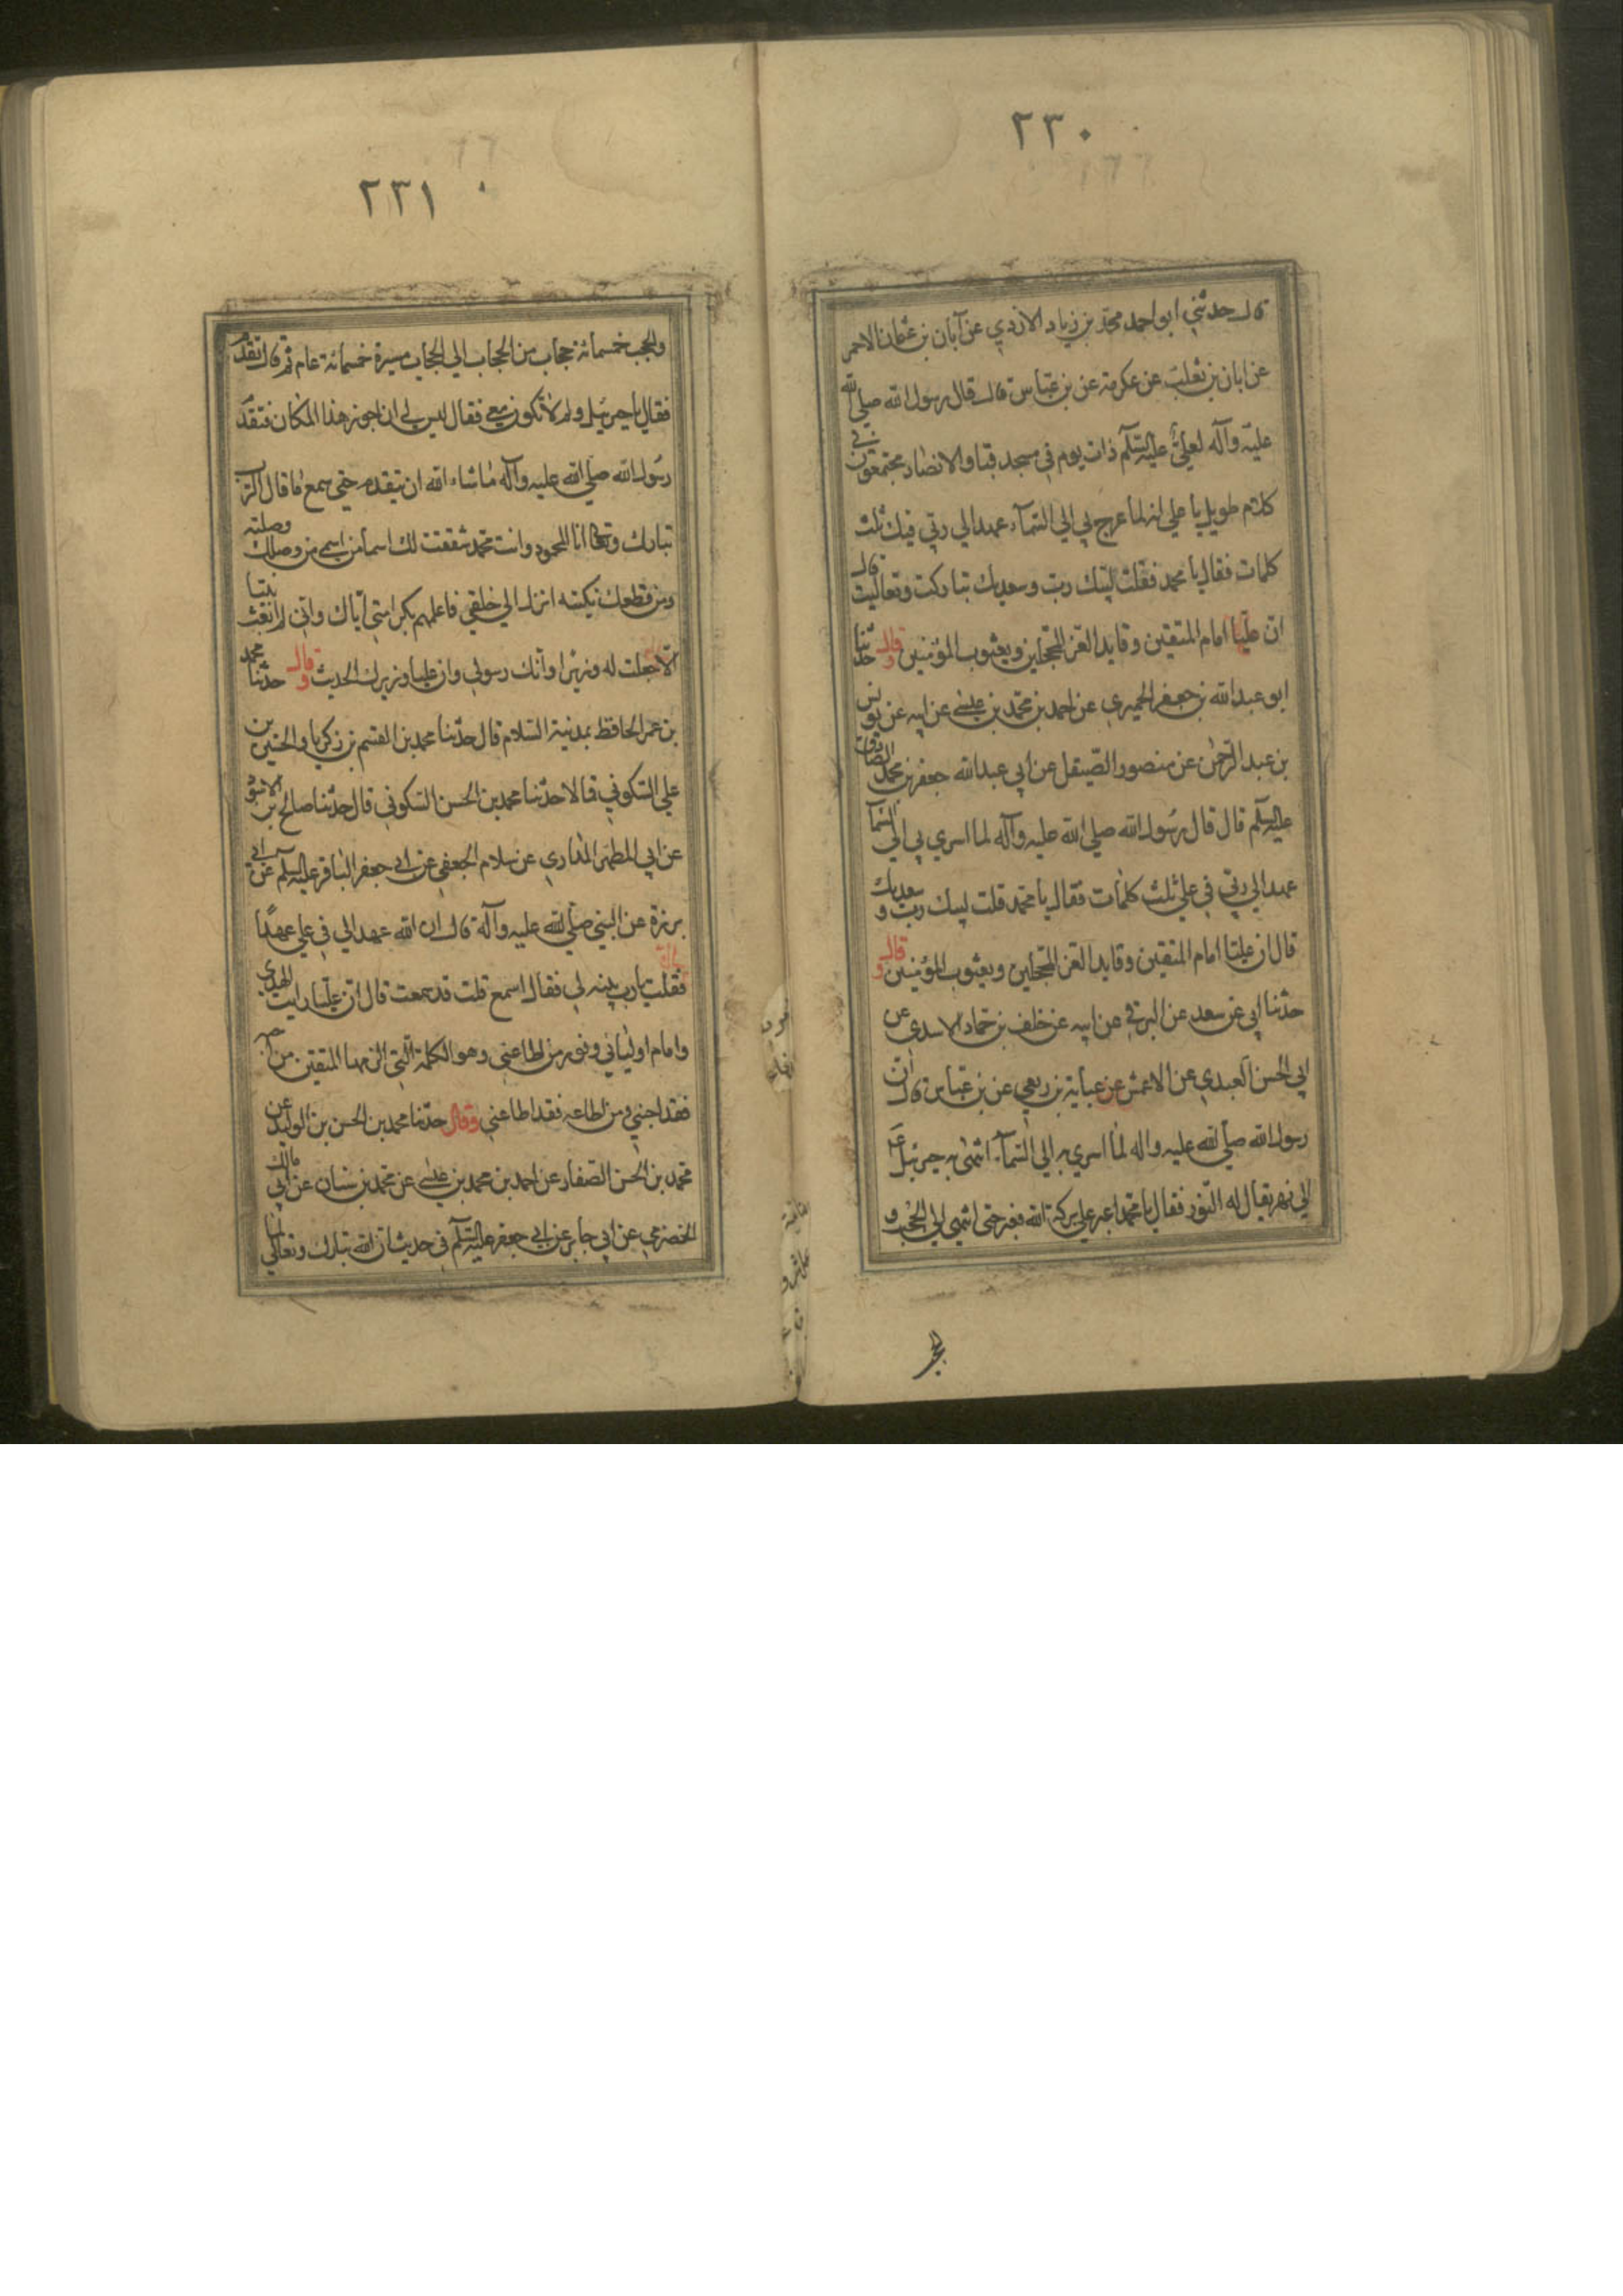 ٢٣٠
قال حدثني ابو احمد محمد بن زياد الازدي عن آبان بن عثمان الاحمر
عن ابان بن تغلب عن عكرمة عن بن عباس قال قال رسول الله صلي الله
عليه وآله لعلي عليه السلام ذات يوم في مسجد قبا والانصار مجتمعون في
كلام طويل يا علي انه لما عرج بي الي السمآء عهد الي ربي فيك ثلث
كلمات فقال يا محمد فقلت لبيك رب وسعديك تباركت وتعاليت قال
ان عليا امام المتقين وقايد الغر المحجلين ويعسوب المؤمنين وقال حدثنا
ابو عبد الله بن جعفر الحميري عن احمد بن محمد بن عيسى عن ابيه عن يونس
بن عبد الرحمن عن منصور الصيقل عن ابي عبد الله جعفر بن محمد الصادق
عليه السلم قال قال رسول الله صلي الله عليه وآله لما اسري بي الي السما
عهد الي ربي في علي ثلث كلمات فقال يا محمد قلت لبيك رب وسعديك
قال ان عليا امام المتقين وقايد الغر المحجلين ويعسوب المؤمنين وقال
حدثنا ابي عن سعد عن البرقي عن ابيه عن خلف بن حماد الاسدي عن
ابي الحسن العبدي عن الاعمش عن عباية بن ربعي عن بن عباس قال ان
رسول الله صلي الله عليه واله لما اسري به الي السمآء انتهى به جبرئيل ع
الي نهر يقال له النور فقال يا محمد اعبر علي بركة الله فعبر حتى انتهي الي الحجب و
٢٣١
والحجب خمسمائة حجاب من الحجاب الي الحجاب مسيرة خمسمائة عام ثم قال تقدم
فقال يا جبرئيل ولم لا تكون معي فقال ليس لي ان اجوز هذا المكان فتقدم
رسول الله صلي الله عليه وآله ما شاء الله ان يتقدم حتي سمع ما قال الرب
تبارك وتعالى انا المحمود وانت محمد شققت لك اسما من اسمي من وصلك وصلته
ومن قطعك بكته انزل الي خلقي فاعلمهم بكرامتي اياك واني لم ابعث نبيا
الا جعلت له وزيرا وانك رسولي وان عليا وزيرك الحديث وقال حدثنا محمد
بن عمر الحافظ بمدينة السلام قال حدثنا محمد بن القسم بن زكريا والحسين بن
علي السكوني قالا حدثنا محمد بن الحسن السكوني قال حدثنا صالح بن الاسود
عن ابي المطهر المذاري عن سلام الجعفي عن ابي جعفر الباقر عليه السلم عن ابي
برزة عن النبي صلي الله عليه وآله قال ان الله عهد الي في علي عهدا
فقلت يا رب بينه لي فقال اسمع قلت قد سمعت قال ان عليا رايت الهدي
وامام اوليائي ونور من اطاعني وهو الكلمة التي الزمها المتقين من احبه
فقد احبني ومن اطاعه فقد اطاعني وقال حدثنا محمد بن الحسن بن الوليد عن
محمد بن الحسن الصفار عن احمد بن محمد بن عيسى عن محمد بن سنان عن ابي مالك
الحضرمي عن ابي جابر عن ابي جعفر عليه السلم في حديث ان الله تبارك وتعالي لما